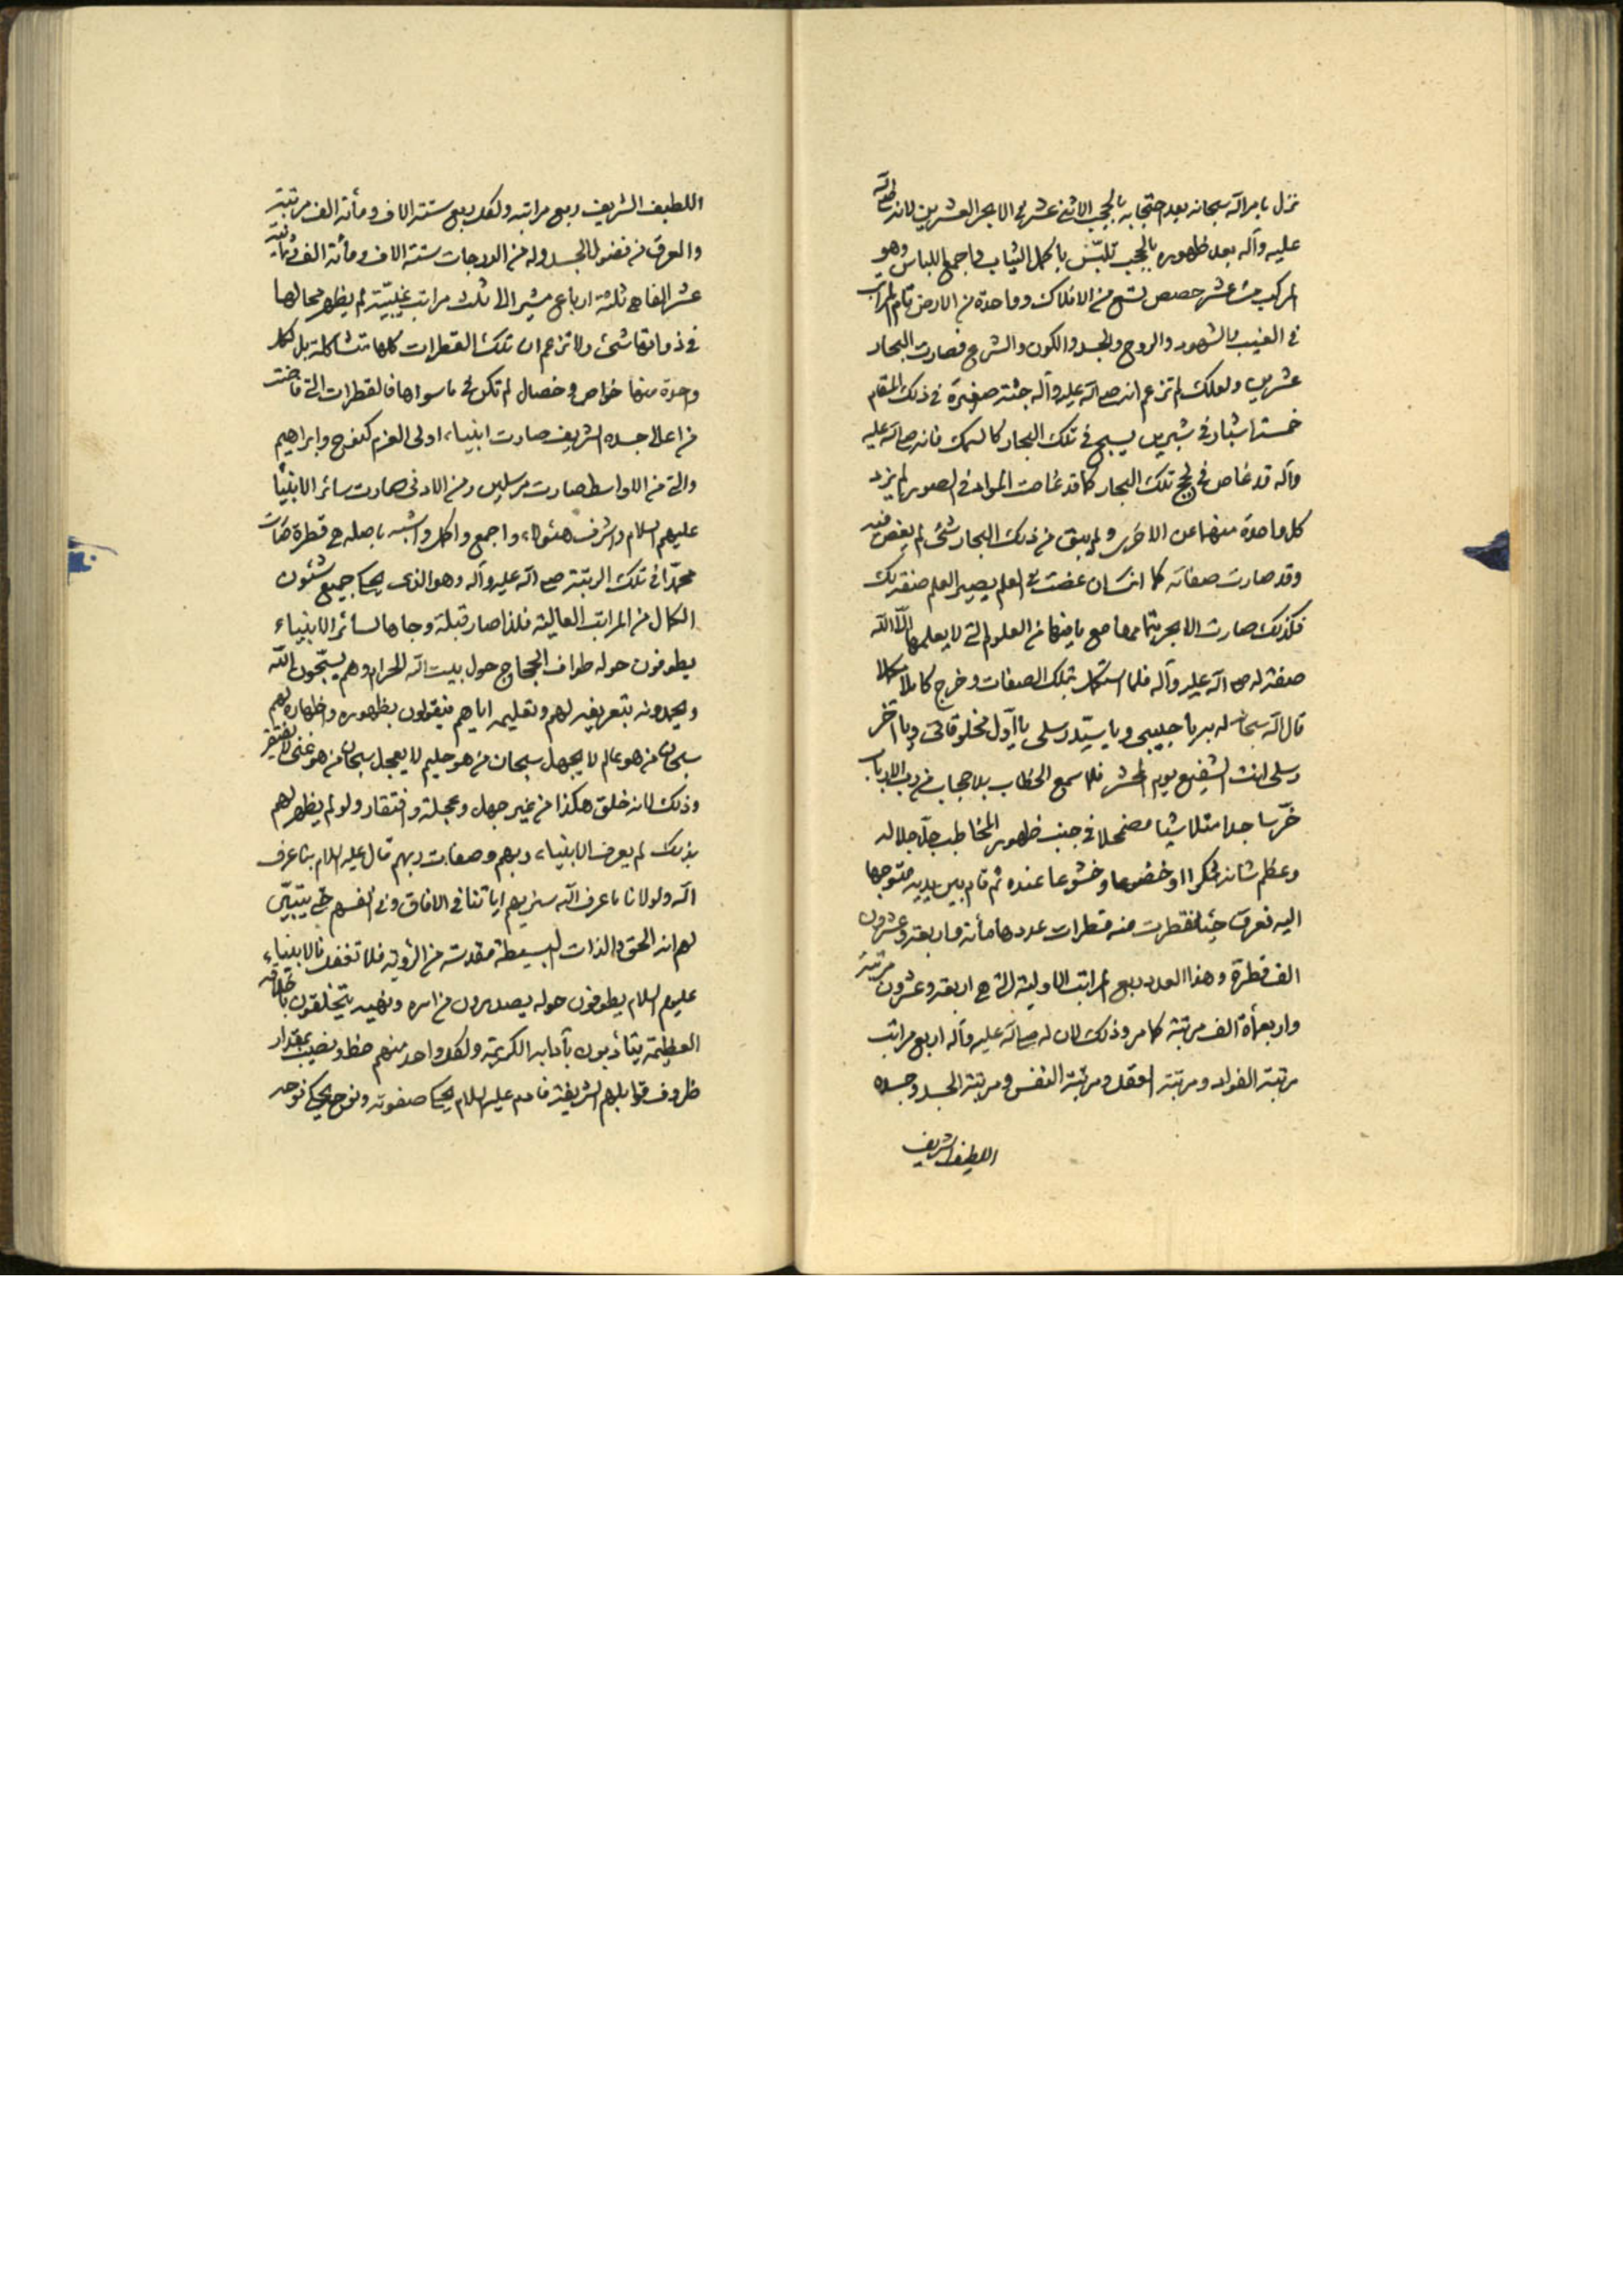 نزل بامر الله سبحانه بعد احتجابه بالحجب الاثنى عشر فى الابحر العشرين لانه صلى الله
عليه وآله بعد ظهوره بالحجب تلبّس باكمل الثياب واجمع اللباس وهو
المركب من عشر حصص تسع من الافلاك وواحدة من الارض تام المراتب
فى الغيب والشهود والروح والجسد والكون والشرع فصارت البحار
عشرين ولعلك لم تزعم انه صلى الله عليه وآله جثته صغيرة فى ذلك المقام
خمسة اشبار فى شبرين يسبح فى تلك البحار كالسمك فانه صلى الله عليه
وآله قد غاص فى لجج تلك البحار كما قد غاصت المواد فى الصور لم يزد
كل واحدة منهما عن الاخرى ولم يبق من ذلك البحار شئ لم يغص فيه
وقد صارت صفاته كما انسان غصت فى العلم يصير العلم صفة لك
فكذلك صارت الابحر بتمامها مع ما فيها من العلوم التى لا يعلمها الّا الله
صفة له صلى الله عليه وآله فلما استكمل بتلك الصفات وخرج كاملا مكملا
قال الله سبحانه له بيا حبيبى ويا سيّد رسلى يا اول مخلوقاتى ويا آخر
رسلى انت الشفيع يوم المحشر فلما سمع الخطاب بلا حجاب من رب الارباب
خرّ ساجدا متلاشيا مضمحلا فى جنب ظهور المخاطب جلّ جلاله
وعظم شانه شكرا وخضوعا وخشوعا عنده ثم قام بين يديه متوجها
اليه فعرق حينئذ فقطرت منه قطرات عددها مأته واربعة وعشرون
الف قطرة وهذا العدد ربع المراتب الاولية التى هى اربعة وعشرون مرتبة
واربعمأة الف مرتبة كما مر وذلك لان له صلى الله عليه وآله اربع مراتب
مرتبة الفواد ومرتبة العقل ومرتبة النفس ومرتبة الجسد وجسده
اللطيف الشريف
اللطيف الشريف ربع مراتبه ولكل ربع ستة الاف ومأته الف مرتبة
والعرق من فضول الجسد وله من الدرجات ستة الاف ومأته الف وثمانية
عشر الفا هى ثلثة ارباع مشير الى ثلث مراتب غيبيّة لم يظهر محالها
فى ذواتها شئ ولا تزعم ان تلك القطرات كلها متشاكلة بل لكل
واحدة منها خواص وخصال لم تكن فى ما سواها فالقطرات التى فاضت
من اعالى جسده الشريف صارت انبياء اولى العزم كنوح وابراهيم
والتى من الاواسط صارت مرسلين ومن الادنى صارت سائر الانبيآء
عليهم السلام واشرف هئولاء واجمع واكمل واشبه باصله هى قطرة صارت
محمدا فى تلك الرتبة صلى الله عليه وآله وهو الذى يحكى جميع شئون
الكمال من المراتب العالية فلذا صار قبلة وجاها لسائر الانبياء
يطوفون حوله طواف الحجاج حول بيت الله الحرام وهم يسبّحون الله
ويحمدونه بتعريفه لهم وتعليمه اياهم فيقولون بظهوره واظهاره لهم
سبحان من هو عالم لا يجهل سبحان من هو حليم لا يعجل سبحان من هو غنى لا يفتقر
وذلك لانه خلق هكذا من غير جهل وعجلة وافتقار ولو لم يظهر لهم
بذلك لم يعرف الانبياء ربهم وصفات ربهم قال عليه السلام بنا عرف
الله ولولانا ما عرف الله سنريهم اياتنا فى الافاق وفى انفسهم حتى يتبيّن
لهم انه الحق والذات البسيطة مقدسة من الرؤية فلا تغفل فالانبياء
عليهم السلام يطوفون حوله يصدرون من امره ونهيه يتخلقون باخلاقه
العظيمة يتأدبون بآدابه الكريمة ولكل واحد منهم حظ ونصيب بمقدار
ظروف قوابلهم الشريفة فادم عليه السلام يحكى صفوته ونوح يحكى نوحه